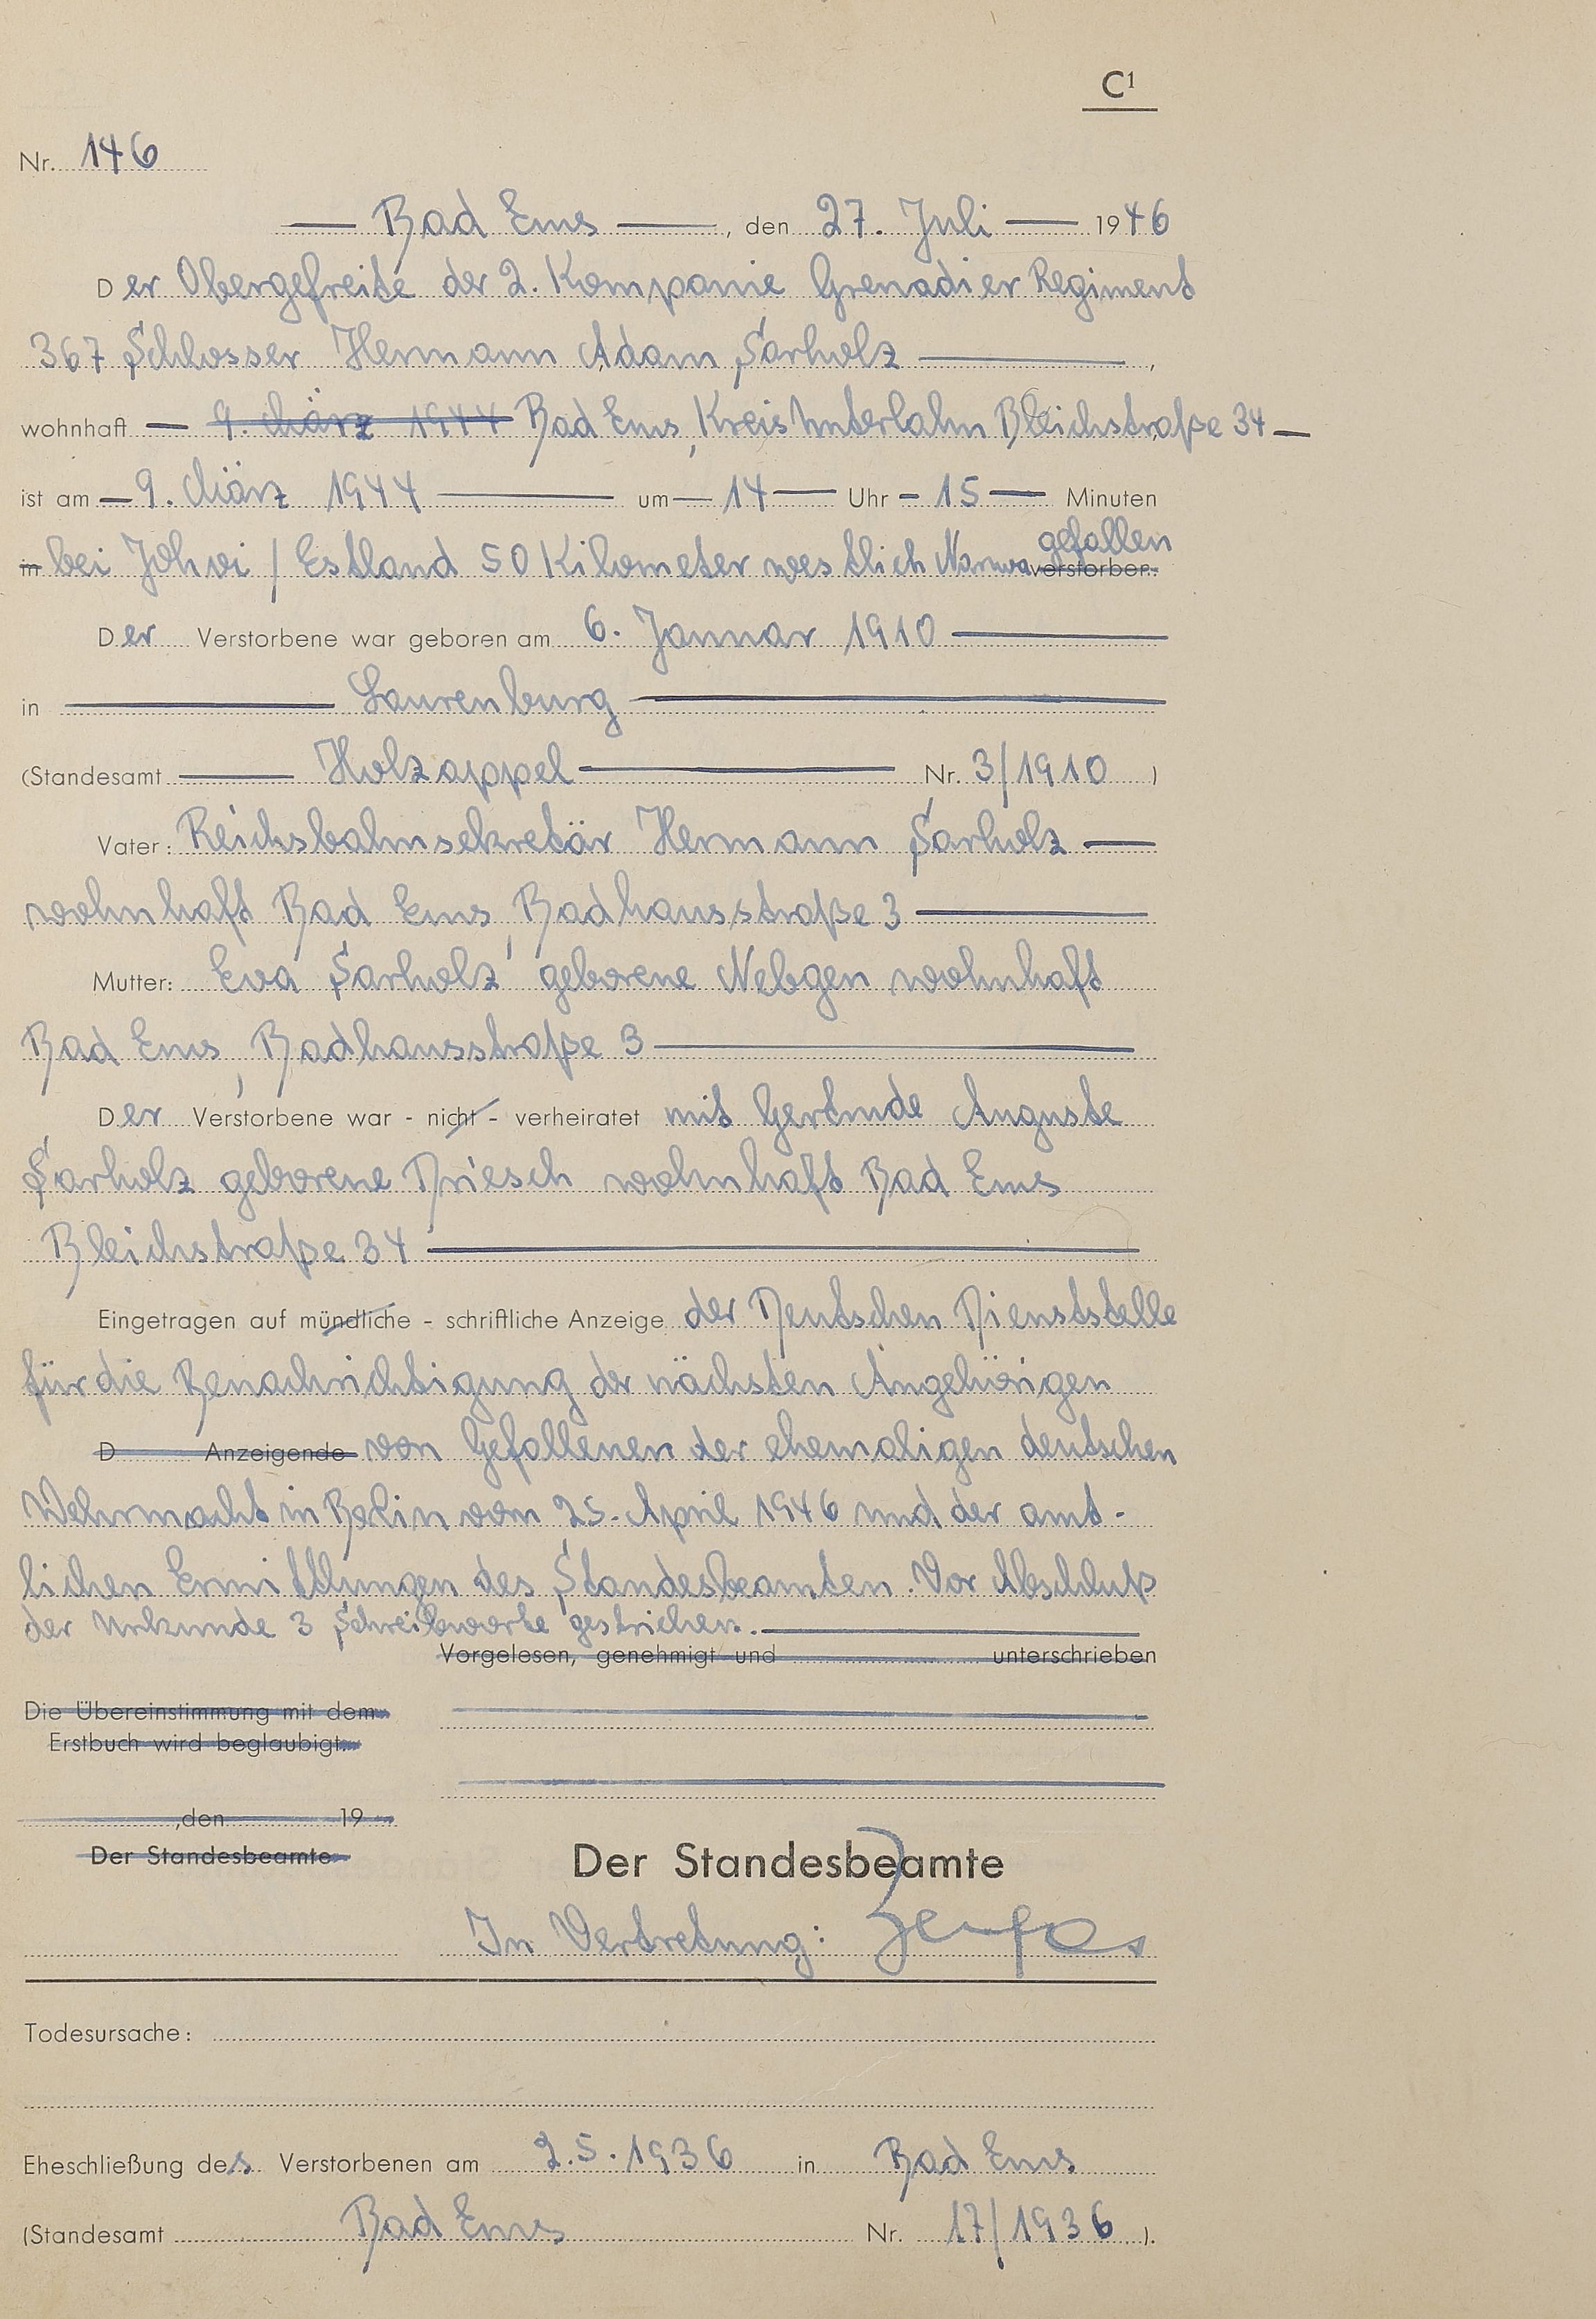 C1
Nr. 146
— Bad Ems —, den 27. Juli — 1946
Der Obergefreite der 2. Kompanie Grenadier Regiment
367 Schlosser Hermann Adam Sarholz —,
wohnhaft — 9. März 1944 Bad Ems, Kreis Unterlahn Bleichstraße 34 —
ist am — 9. März 1944 — um — 14 — Uhr — 15 — Minuten
gefallen
in bei Johvi / Estland 50 Kilometer westlich Narwa verstorben.
Der Verstorbene war geboren am 6. Januar 1910 —
in — Laurenburg —
(Standesamt — Holzappel — Nr. 3/1910 )
Vater: Reichsbahnsekretär Hermann Sarholz —
wohnhaft Bad Ems, Badhausstraße 3 —
Mutter: Eva Sarholz geborene Nebgen wohnhaft
Bad Ems, Badhausstraße 3 —
Der Verstorbene war - nicht - verheiratet mit Gertrude Auguste
Sarholz geborene Driesch wohnhaft Bad Ems
Bleichstraße 34 —
Eingetragen auf mündliche - schriftliche Anzeige der Deutschen Dienststelle
für die Benachrichtigung der nächsten Angehörigen
D Anzeigende von Gefallenen der ehemaligen deutschen
Wehrmacht in Berlin vom 25. April 1946 und der amt-
lichen Ermittlungen des Standesbeamten. Vor Abschluß
der Urkunde 3 Schreibworte gestrichen. —
Vorgelesen, genehmigt und unterschrieben
Die Übereinstimmung mit dem
Erstbuch wird beglaubigt.
, den 19
Der Standesbeamte
Der Standesbeamte
In Vertretung:
Todesursache:
Eheschließung des Verstorbenen am 2.5.1936 in Bad Ems
(Standesamt Bad Ems Nr. 17/1936 ).